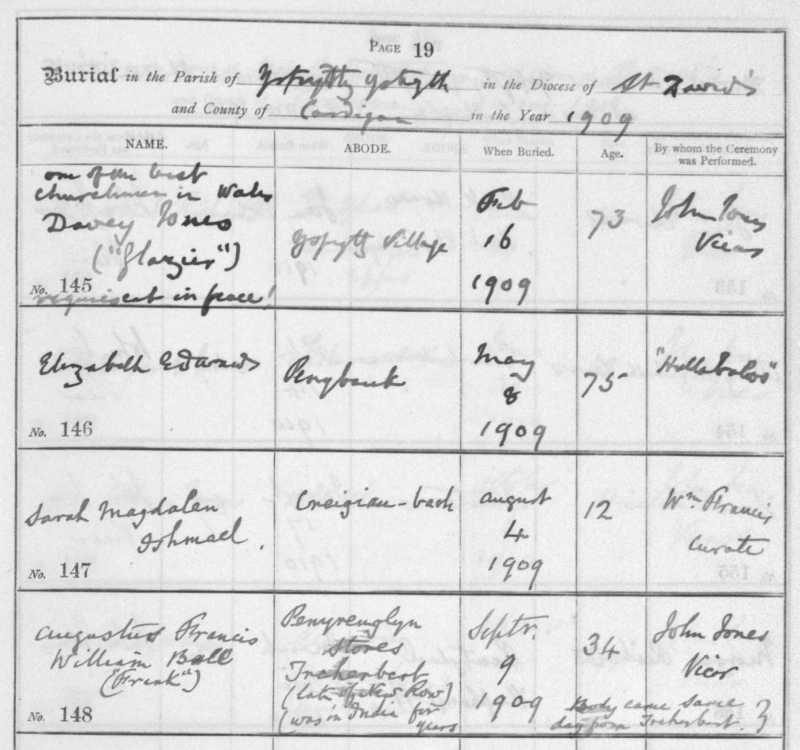 PAGE 19
Burial in the Parish of Yspytty ystwyth in the Diocese of St David's
and County of Cardigan in the Year 1909
NAME. ABODE. When Buried. Age. By whom the Ceremony was Performed.
one of the best
churchmen in Wales
Davey Jones
("Glazier")
No. 145
requiescat in peace!
Yspytty Village
Feb
16
1909
73
John Jones
Vicar
Elizabeth Edwards
No. 146
Penybank
May
8
1909
75
"Hullabaloo"
Sarah Magdalen
Ishmael.
No. 147
Creigiau-bach
August
4
1909
12
Wm Francis
Curate
Augustus Francis
William Ball
("Frank")
No. 148
Penyrenglyn
Stores
Treherbert
(late of New Row)
(was in India for
years
Septr.
9
1909
34
Body came same
day from Treherbert.
John Jones
Vicr